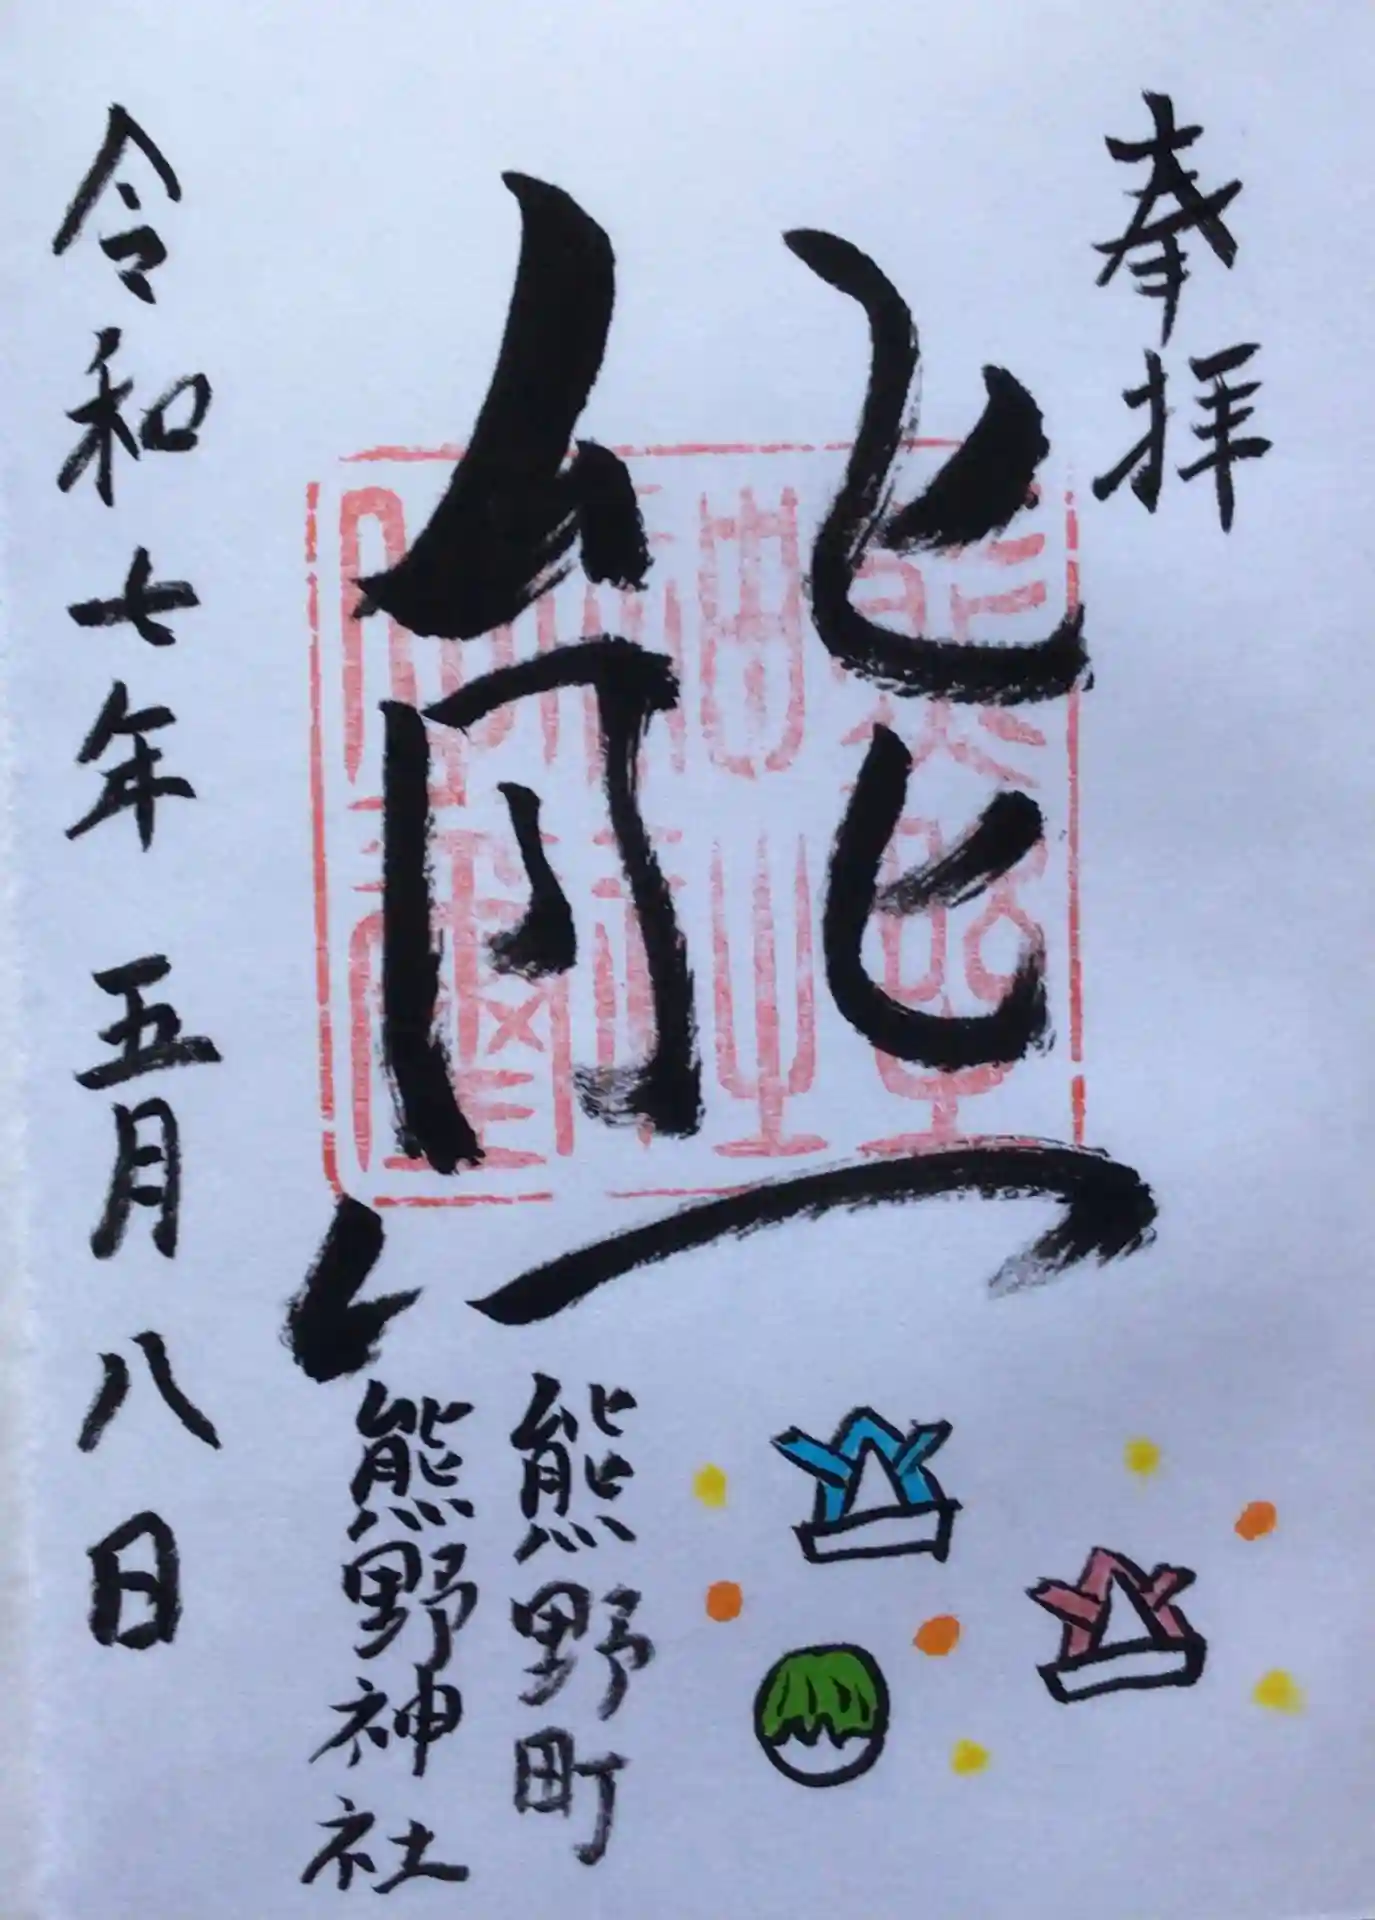 奉拝
熊
熊野町
熊野神社
令和七年五月八日